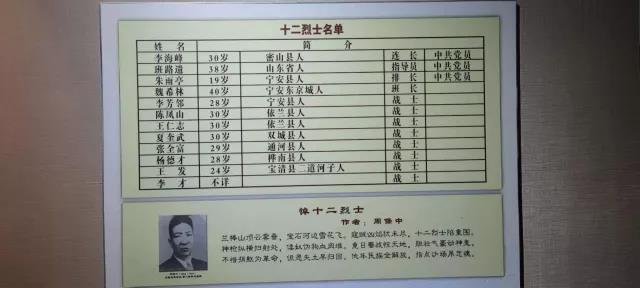 十二烈士名单
姓 名 简 介
李海峰 30岁 密山县人 连 长 中共党员
班路遗 38岁 山东省人 指导员 中共党员
朱雨亭 19岁 宁安县人 排 长 中共党员
魏希林 40岁 宁安东京城人 班 长
李芳邻 28岁 宁安县人 战 士
陈凤山 30岁 依兰县人 战 士
王仁志 30岁 依兰县人 战 士
夏奎武 30岁 双城县人 战 士
张全富 29岁 通河县人 战 士
杨德才 28岁 桦南县人 战 士
王 发 24岁 宝清县二道河子人 战 士
李 才 不详 战 士
悼十二烈士
作者：周保中
兰棒山顶云雾垂，宝石河边雪花飞，寇贼凶焰犹未尽，十二烈士陷重围。
神枪纵横扫射处，倭奴伪狗血肉堆，竟日鏖战惊天地，胆壮气豪动神鬼，
不惜捐躯为革命，但悲失土早归回，他年民族全解放，指点沙场吊忠魂。